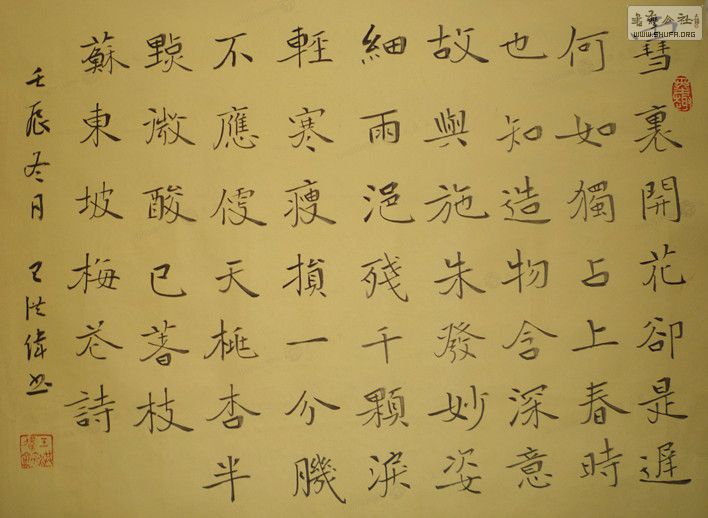 雪裏開花卻是遲
何如獨占上春時
也知造物含深意
故與施朱發妙姿
細雨浥殘千顆淚
輕寒瘦損一分𦠄
不應便天桃杏半
點微酸已著枝
蘇東坡梅花詩
壬辰冬月 王洪偉書
書法公社
WWW.SHUFA.ORG